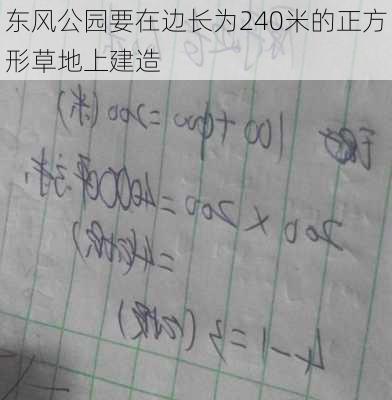 东风公园要在边长为240米的正方
形草地上建造
100+100=200(米)
200×200=40000平方米
=4(公顷)
4-1=3(公顷)